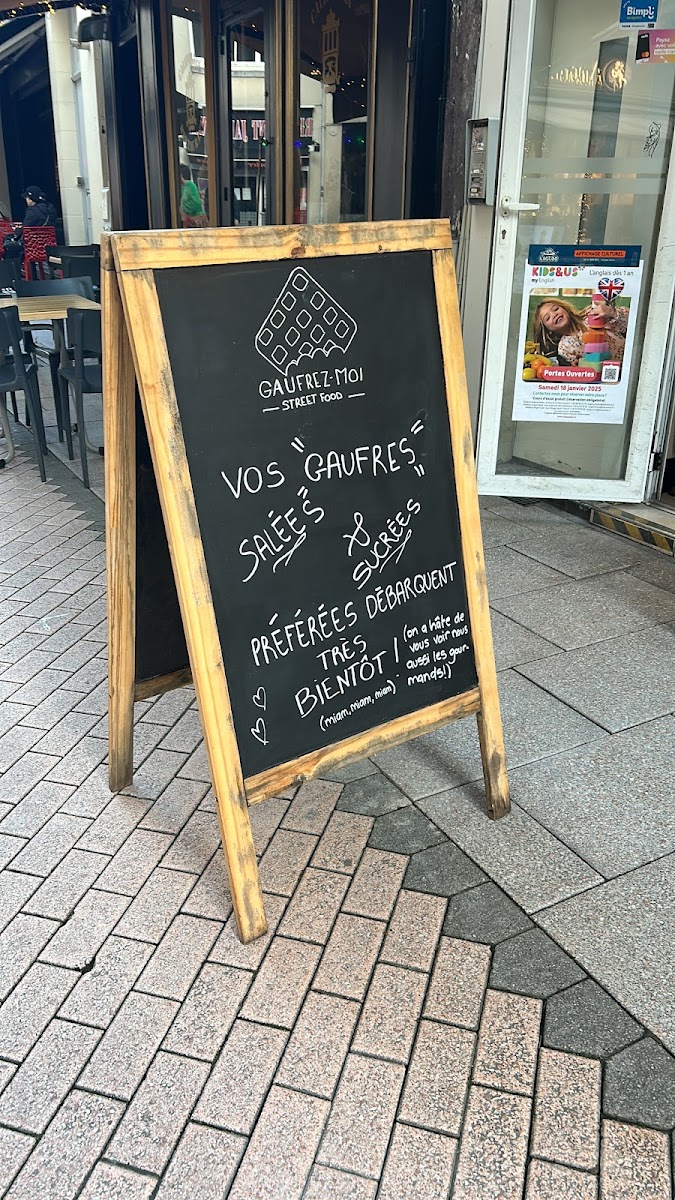 GAUFREZ-MOI
— STREET FOOD —
VOS "GAUFRES"
SALÉES
&
SUCRÉES"
PRÉFÉRÉES DÉBARQUENT
TRÈS
BIENTÔT !
(miam, miam, miam)
(on a hâte de
vous voir nous
aussi les gour-
mands!)
Bimpli
Payez
AFFICHAGE CULTUREL
KIDS&US
my English
L'anglais dès 1 an
Portes Ouvertes
Samedi 18 janvier 2025